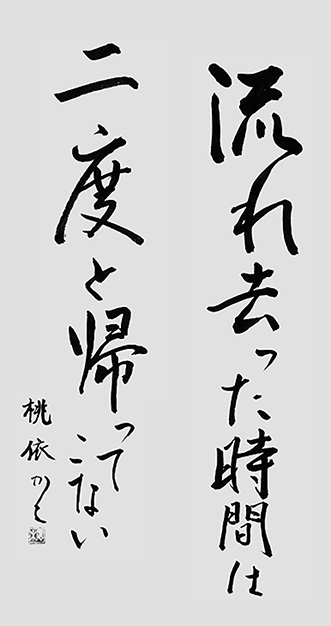 流れ去った時間は
二度と帰ってこない
桃依かく